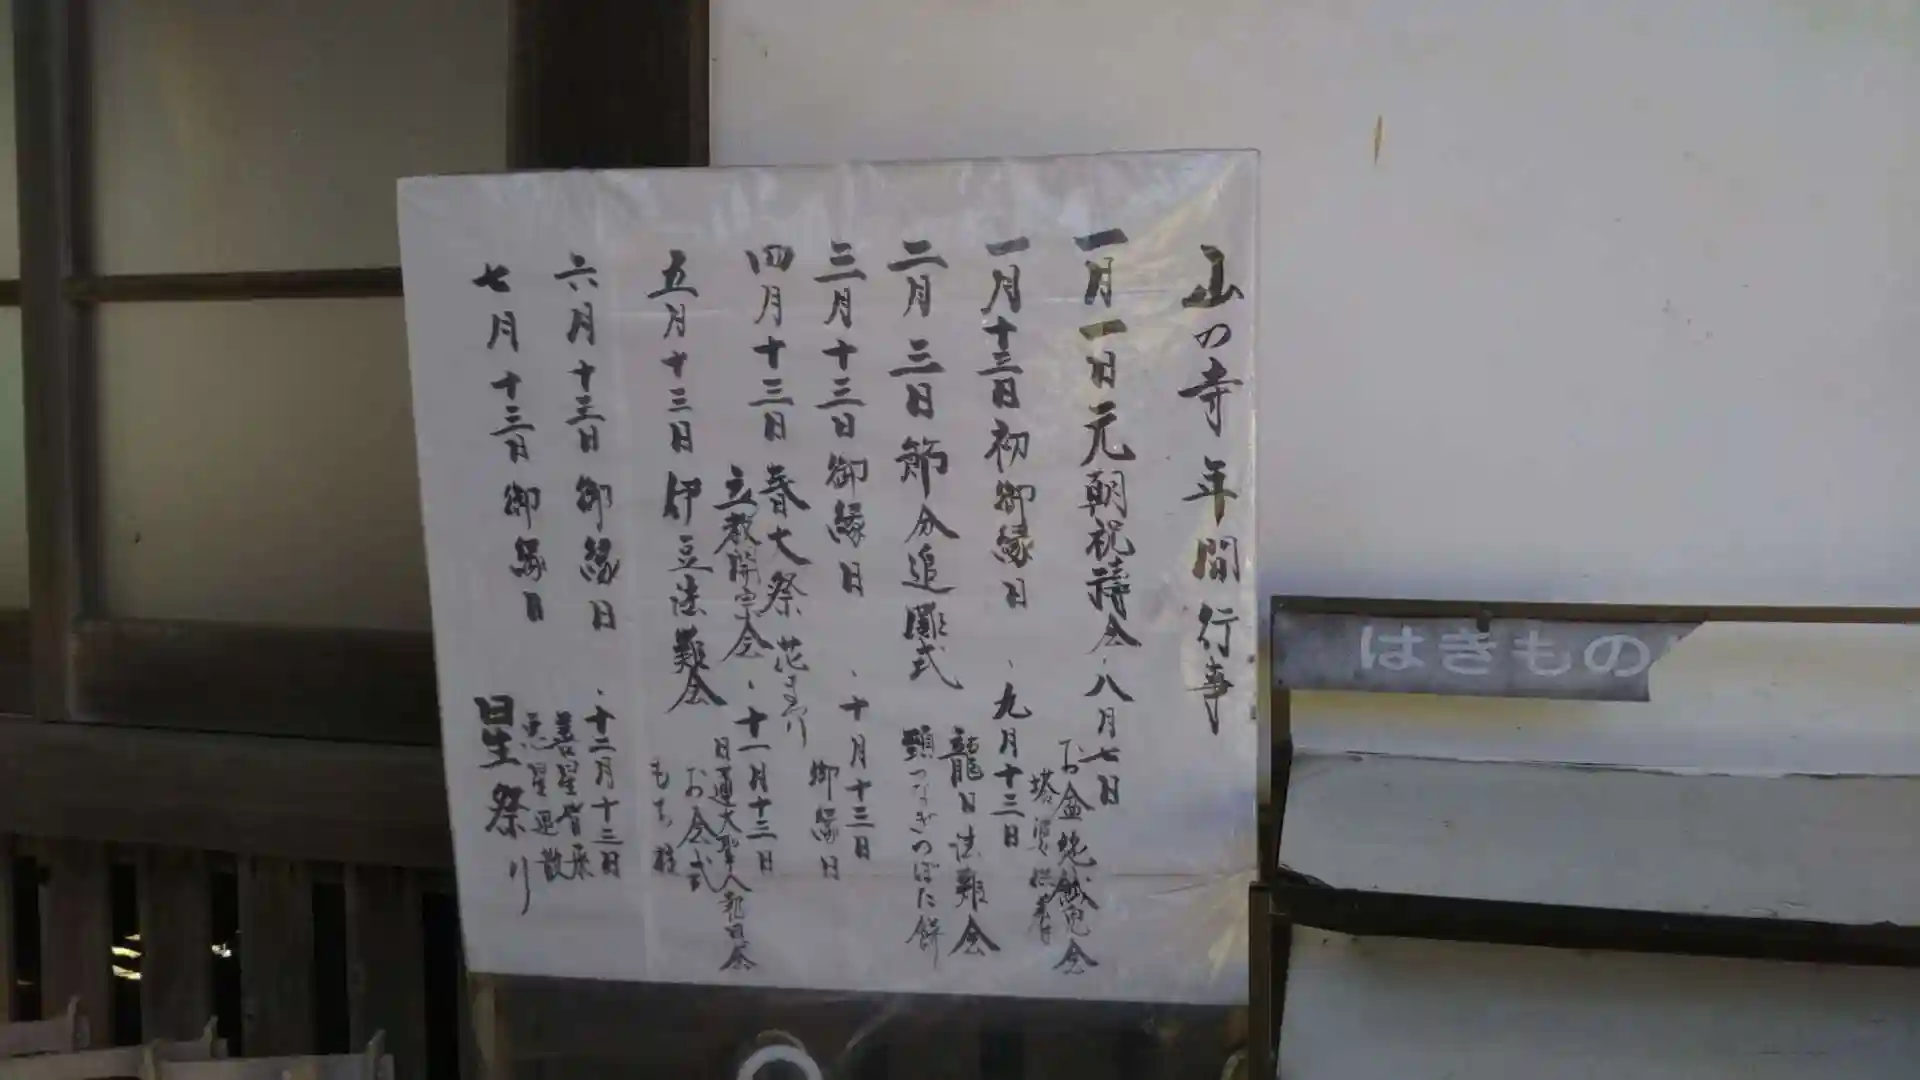 山の寺年間行事
一月一日元朝祝祷会、八月七日
お盆施餓鬼会
塔婆供養
一月十三日初御縁日、九月十三日
龍口法難会
二月三日節分追儺式
頸つなぎのぼた餅
三月十三日御縁日、十月十三日
御縁日
四月十三日春大祭花まつり
立教開宗会、十一月十三日
日蓮大聖人御会
お会式
五月十三日伊豆法難会
もち投
六月十三日御縁日、十二月十三日
善星皆来
悪星退散
七月十三日御縁日
星祭り
はきもの